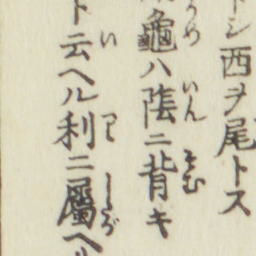 トシ西ヲ尾トス
龜ハ陰ニ背キ
ト云ヘル利ニ屬ヘ